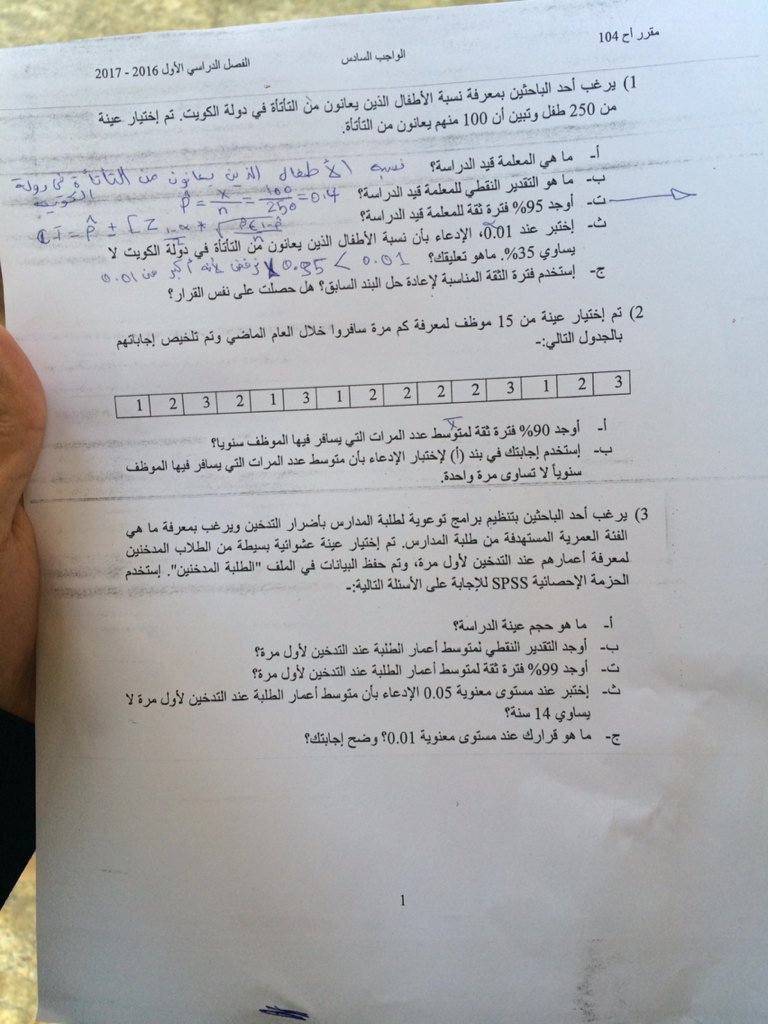 مقرر اح 104
الواجب السادس
الفصل الدراسي الأول 2016 - 2017
1) يرغب أحد الباحثين بمعرفة نسبة الأطفال الذين يعانون من التأتأة في دولة الكويت. تم إختيار عينة
من 250 طفل وتبين أن 100 منهم يعانون من التأتأة.
أ- ما هي المعلمة قيد الدراسة؟ نسبه الأطفال الذين يعانون من التأتأة في دولة الكويت
ب- ما هو التقدير النقطي للمعلمة قيد الدراسة؟ p̂ = x/n = 100/250 = 0.4
ت- أوجد 95% فترة ثقة للمعلمة قيد الدراسة؟
ث- إختبر عند 0.01، الإدعاء بأن نسبة الأطفال الذين يعانون من التأتأة في دولة الكويت لا
يساوي 35%. ماهو تعليقك؟ 0.01 > 0.95 نرفض لأنه أكبر من 0.01
ج- إستخدم فترة الثقة المناسبة لإعادة حل البند السابق؟ هل حصلت على نفس القرار؟
2) تم إختيار عينة من 15 موظف لمعرفة كم مرة سافروا خلال العام الماضي وتم تلخيص إجاباتهم
بالجدول التالي:-
1 2 3 2 1 3 1 2 2 2 2 3 1 2 3
أ- أوجد 90% فترة ثقة لمتوسط عدد المرات التي يسافر فيها الموظف سنويا؟
ب- إستخدم إجابتك في بند (أ) لإختبار الإدعاء بأن متوسط عدد المرات التي يسافر فيها الموظف
سنوياً لا تساوى مرة واحدة.
3) يرغب أحد الباحثين بتنظيم برامج توعوية لطلبة المدارس بأضرار التدخين ويرغب بمعرفة ما هي
الفئة العمرية المستهدفة من طلبة المدارس. تم إختيار عينة عشوائية بسيطة من الطلاب المدخنين
لمعرفة أعمارهم عند التدخين لأول مرة، وتم حفظ البيانات في الملف "الطلبة المدخنين". إستخدم
الحزمة الإحصائية SPSS للإجابة على الأسئلة التالية:-
أ- ما هو حجم عينة الدراسة؟
ب- أوجد التقدير النقطي لمتوسط أعمار الطلبة عند التدخين لأول مرة؟
ت- أوجد 99% فترة ثقة لمتوسط أعمار الطلبة عند التدخين لأول مرة؟
ث- إختبر عند مستوى معنوية 0.05 الإدعاء بأن متوسط أعمار الطلبة عند التدخين لأول مرة لا
يساوي 14 سنة؟
ج- ما هو قرارك عند مستوى معنوية 0.01؟ وضح إجابتك؟
1